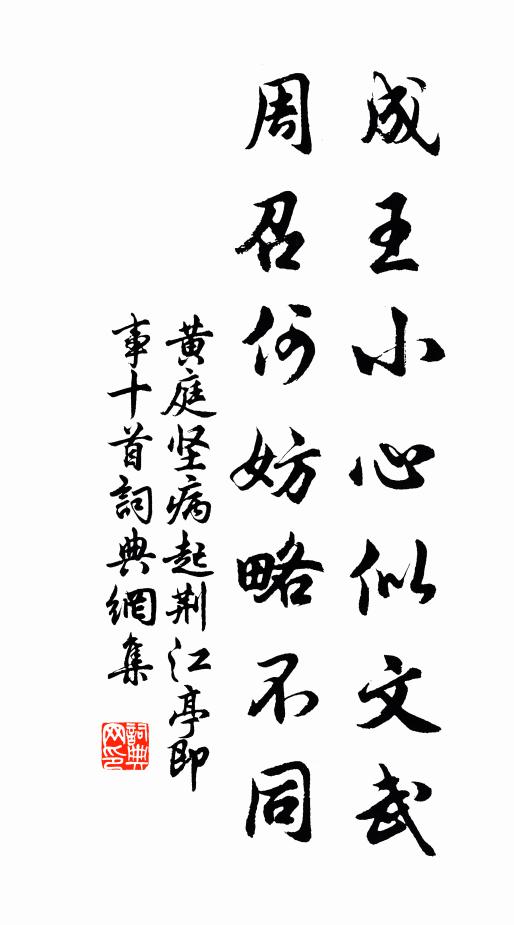 成王小心似文武
周召何妨略不同
黄庭坚病起荆江亭即
事十首詞典網集
詞典
网印